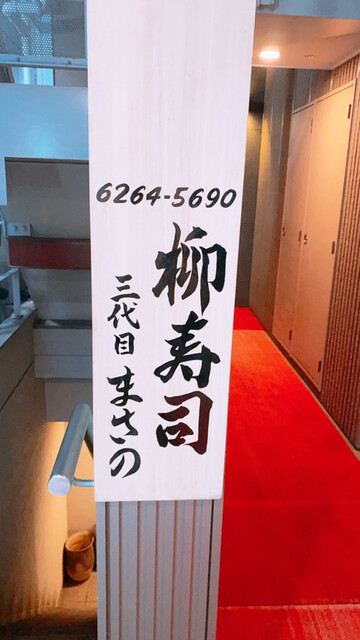 6264-5690
柳寿司
三代目 まさの